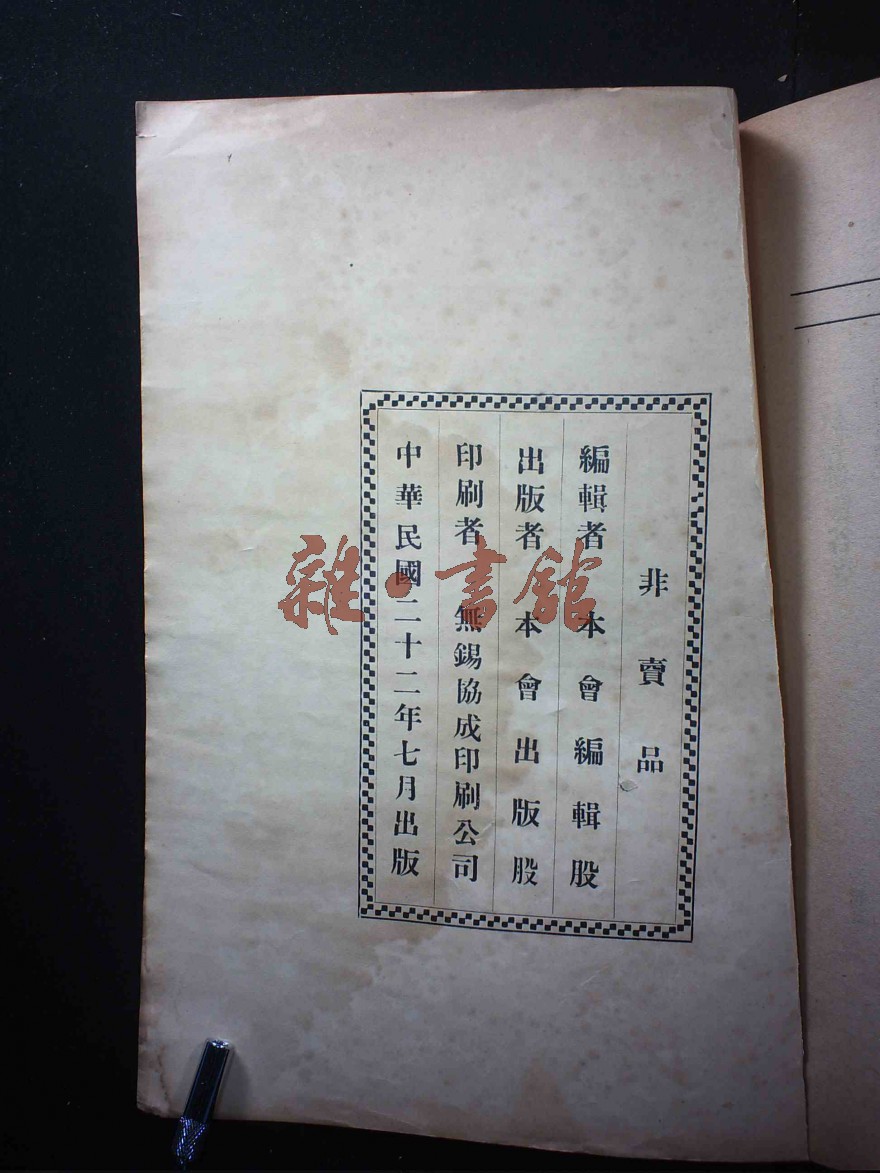 非賣品
編輯者 本會編輯股
出版者 本會出版股
印刷者 無錫協成印刷公司
中華民國二十二年七月出版
雜·書館